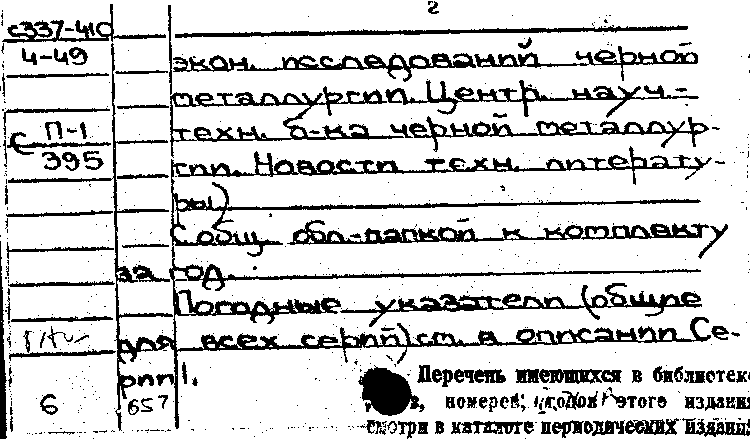 2
с337-410
4-49
экон. исследований черной
металлургии. Центр. науч.-
С П-1
395
техн. б-ка черной металлур-
гии. Новости техн. литерату-
ры)
С общ. обл.-папкой к комплекту
за год.
Погодные указатели (общие
для всех серий) см. в описании Се-
рии 1.
6
657
Перечень имеющихся в библиотеке
номеров, годов этого издания
смотри в каталоге периодических изданий